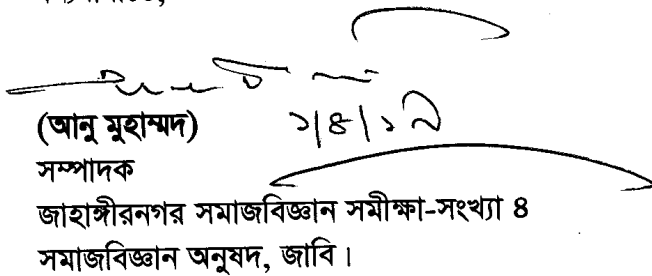 (আনু মুহাম্মদ) ১/৪/১৯
সম্পাদক
জাহাঙ্গীরনগর সমাজবিজ্ঞান সমীক্ষা-সংখ্যা ৪
সমাজবিজ্ঞান অনুষদ, জাবি।